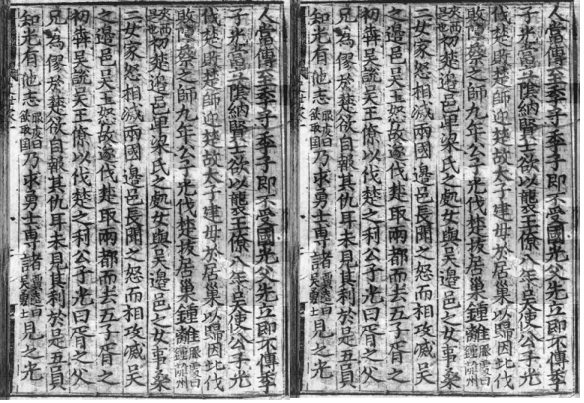 人當傳至季子季子即不受國光父先立即不傳季
子光當立陰納賢士欲以襲王僚八年吳使公子光
伐楚敗楚師迎楚故太子建母於居巢以歸因北伐
敗陳蔡之師九年公子光伐楚拔居巢鍾離服虔曰鍾離州
來西邑也初楚邊邑卑梁氏之處女與吳邊邑之女爭桑
二女家怒相滅兩國邊邑長聞之怒而相攻滅吳
之邊邑吳王怒故遂伐楚取兩都而去五子胥之
初犇吳說吳王僚以伐楚之利公子光曰胥之父
兄為僇於楚欲自報其仇耳未見其利於是五員
知光有他志服虔曰欲取國乃求勇士專諸賈逵曰吳勇士見之光
人當傳至季子季子即不受國光父先立即不傳季
子光當立陰納賢士欲以襲王僚八年吳使公子光
伐楚敗楚師迎楚故太子建母於居巢以歸因北伐
敗陳蔡之師九年公子光伐楚拔居巢鍾離服虔曰鍾離州
來西邑也初楚邊邑卑梁氏之處女與吳邊邑之女爭桑
二女家怒相滅兩國邊邑長聞之怒而相攻滅吳
之邊邑吳王怒故遂伐楚取兩都而去五子胥之
初犇吳說吳王僚以伐楚之利公子光曰胥之父
兄為僇於楚欲自報其仇耳未見其利於是五員
知光有他志服虔曰欲取國乃求勇士專諸賈逵曰吳勇士見之光